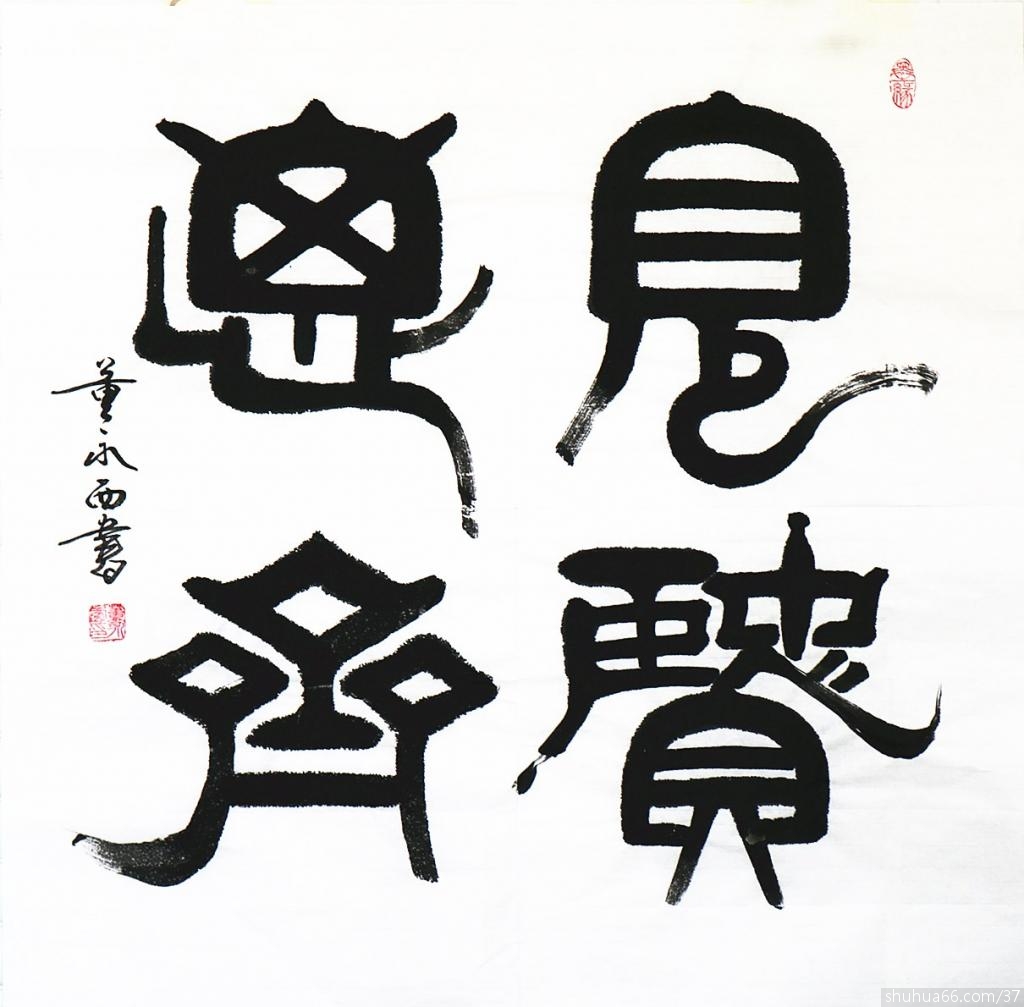 見賢
思齊
董永西書
shuhua66.com/37